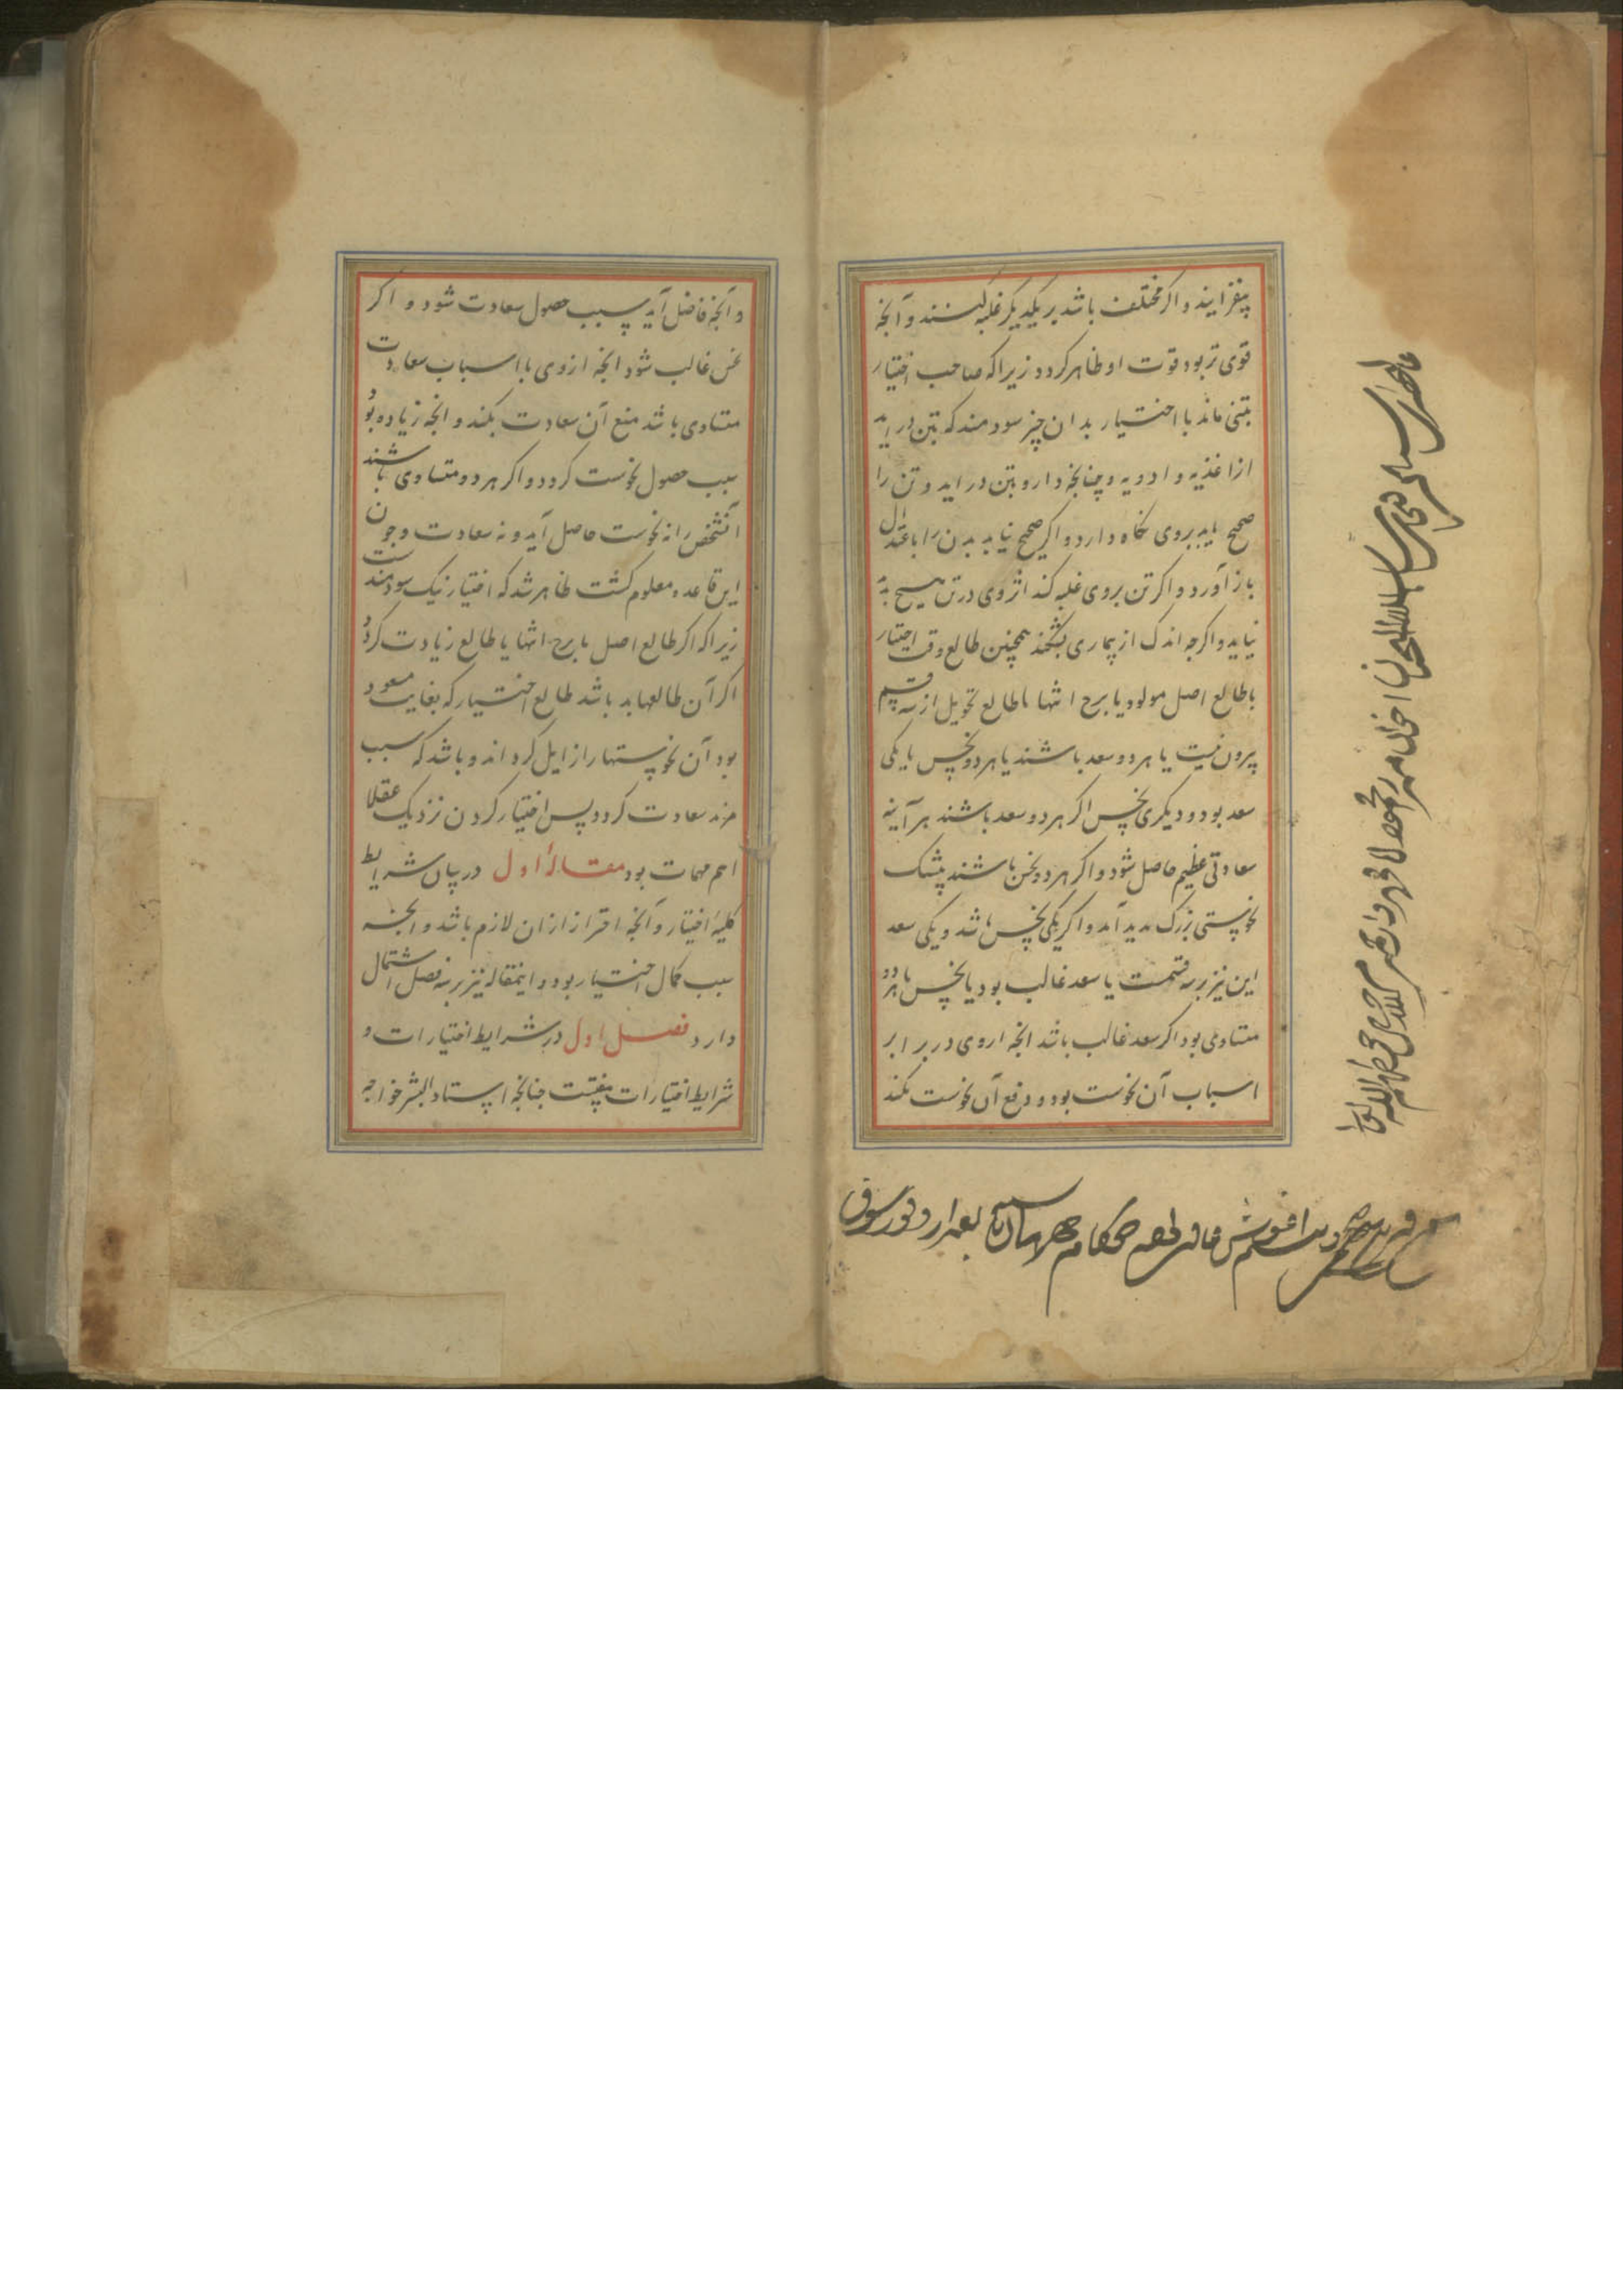 بیفزایند و اکر مختلف باشد بر یکدیکر غلبه کنند و آنجه
قوی تر بود قوت او ظاهر کردد زیرا که صاحب اختیار
بتنی ماند با اختیار بدان چیز سودمند که بتن در اید
از اغذیه و ادویه و چنانجه دارو بتن در اید و تن را
صحیح یابد بروی نکاه دارد و اکر صحیح نیابد بدن را باعتدال
باز آورد و اکر تن بروی غلبه کند از وی در تن هیچ بد
نیاید و اکرجه اندک از بیماری بشکند همچنین طالع وقت اختیار
با طالع اصل مولود یا برج انتها یا طالع تحویل از سه قسم
بیرون نیست یا هر دو سعد باشند یا هر دو نحس یا یکی
سعد بود و دیکری نحس اکر هر دو سعد باشند هر آینه
سعادتی عظیم حاصل شود و اکر هر دو نحس باشند بیشک
نحوستی بزرک بدید آید و اکر یکی نحس باشد و یکی سعد
این نیز بر سه قسمت یا سعد غالب بود یا نحس یا هر دو
متساوی بود اکر سعد غالب باشد انجه از وی در برابر
اسباب آن نحوست بود و دفع آن نحوست بکند
و آنجه فاضل آید سبب حصول سعادت شود و اکر
نحس غالب شود انجه از وی با اسباب سعادت
متساوی باشد منع آن سعادت بکند و انجه زیاده بود
سبب حصول نحوست کردد و اکر هر دو متساوی باشند
آنشخص را نه نحوست حاصل آید و نه سعادت و جون
این قاعده معلوم کشت ظاهر شد که اختیار نیک سودمندست
زیرا که اکر طالع اصل یا برج انتها یا طالع زیادت کردد
اکر آن طالعها بد باشد طالع اختیار که بغایت مسعود
بود آن نحوستها را زایل کرداند و باشد که سبب
مزید سعادت کردد پس اختیار کردن نزدیک عقلا
اهم مهمات بود مقالهٔ اول در بیان شرایط
کلیهٔ اختیار و آنجه احتراز از ان لازم باشد و انجه
سبب کمال اختیار بود و اینمقاله نیز بر سه فصل اشتمال
دارد فصل اول در شرایط اختیارات و
شرایط اختیارات هفتست جنانجه استاد البشر خواجه